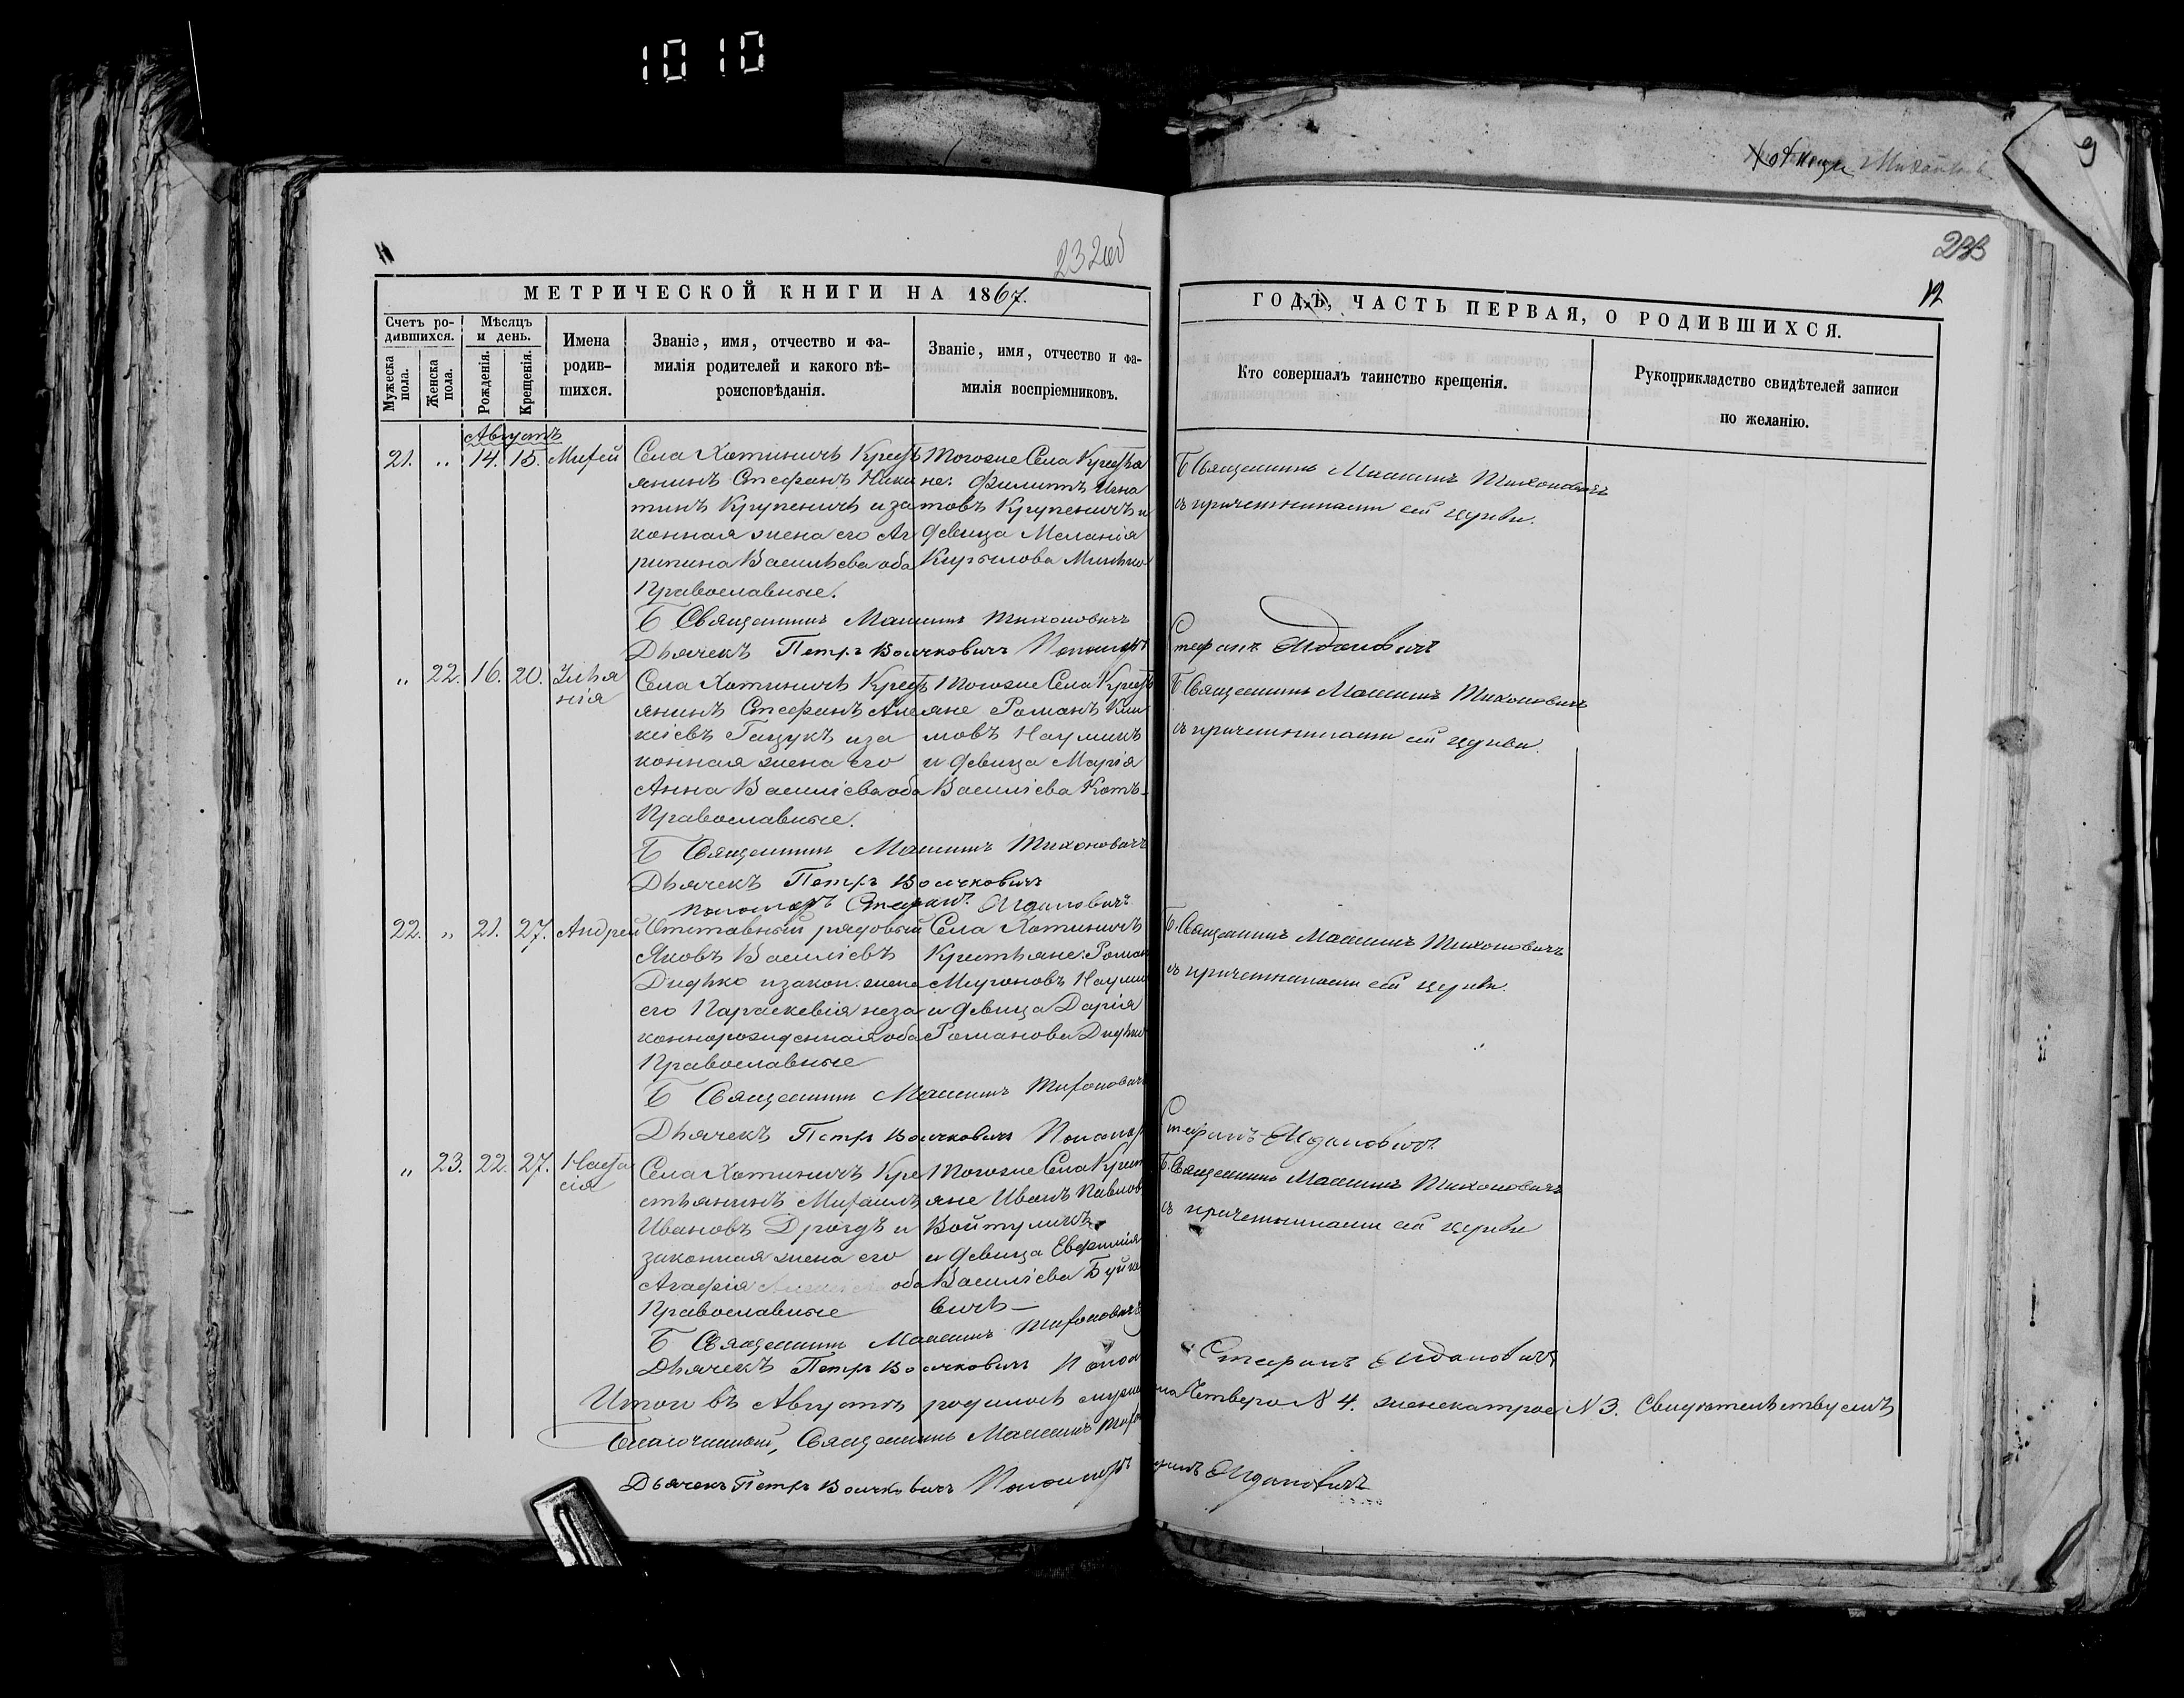 10 10
Хотиничи
9
11
232об
233
12
МЕТРИЧЕСКОЙ КНИГИ НА 1867.
ГОДЪ, ЧАСТЬ ПЕРВАЯ, О РОДИВШИХСЯ.
Счетъ ро-
дившихся.
Мужеска
пола.
Женска
пола.
Мѣсяцъ
и день.
Рожденія.
Крещенія.
Имена
родив-
шихся.
Званіе, имя, отчество и фа-
милія родителей и какого вѣ-
роисповѣданія.
Званіе, имя, отчество и фа-
милія воспріемниковъ.
Кто совершалъ таинство крещенія.
Рукоприкладство свидѣтелей записи
по желанію.
Августъ
21. " 14. 15.
Села Хотиничь Кресть
янинъ Стефанъ Ники
тинъ Крупеничь и за
конная жена его Аг
рипина Васильева оба
Православные.
Тогоже Села Крестья
не: Филиппъ Игна
товъ Крупеничъ и
девица Меланія
Кирылова
Б Священникъ Тихоновичъ
съ причетниками сей церкви.
Б Священникъ Тихоновичъ
Дьячекъ Петръ Пономарь Стефанъ Ждановичъ
" 22. 16. 20. Улья
нія
Села Хотиничь Кресть
янинъ Стефанъ Але
ксіевъ Гацукъ и за
конная жена его
Анна Василіева оба
Православные.
Тогоже Села Кресть
яне Романъ Кли
мовъ Наумикъ
и девица Марія
Василіева Котъ
Б Священникъ Тихоновичъ
съ причетниками сей церкви.
Б Священникъ Тихоновичъ
Дьячекъ Петръ
Пономарь Стефанъ Ждановичъ
22. " 21. 27. Андрей
Отставный рядовый
Яковъ Василіевъ
Дидько и закон. жена
его Параскевія неза
коннорожденная оба
Православные
Села Хотиничь
Крестьяне: Роман
Мироновъ Науми
и девица Дарія
Романова Дидько
Б. Священникъ Тихоновичъ
съ причетниками сей церкви.
Б Священникъ Тихоновичъ
Дьячекъ Петръ Пономарь Стефанъ Ждановичъ
" 23. 22. 27. Наста
сія
Села Хотиничъ Кре
стьянинъ Михаилъ
Ивановъ Дроздъ и
законная жена его
Агафія оба
Православные
Тогоже Села Крест
яне Иванъ Павлов
Войтуликъ
и девица Евфимія
Василіева Буйке
вичь
Б. Священникъ Тихоновичъ
съ причетниками сей церкви
Б Священникъ Тихоновичъ
Дьячекъ Петръ Стефанъ Ждановичъ
Итого въ Августѣ родилось мужеска Четверо N 4. женска трое N 3. Свидѣтельствуемъ
Благочинный, Священникъ
Дьячекъ Петръ Пономарь Ждановичъ